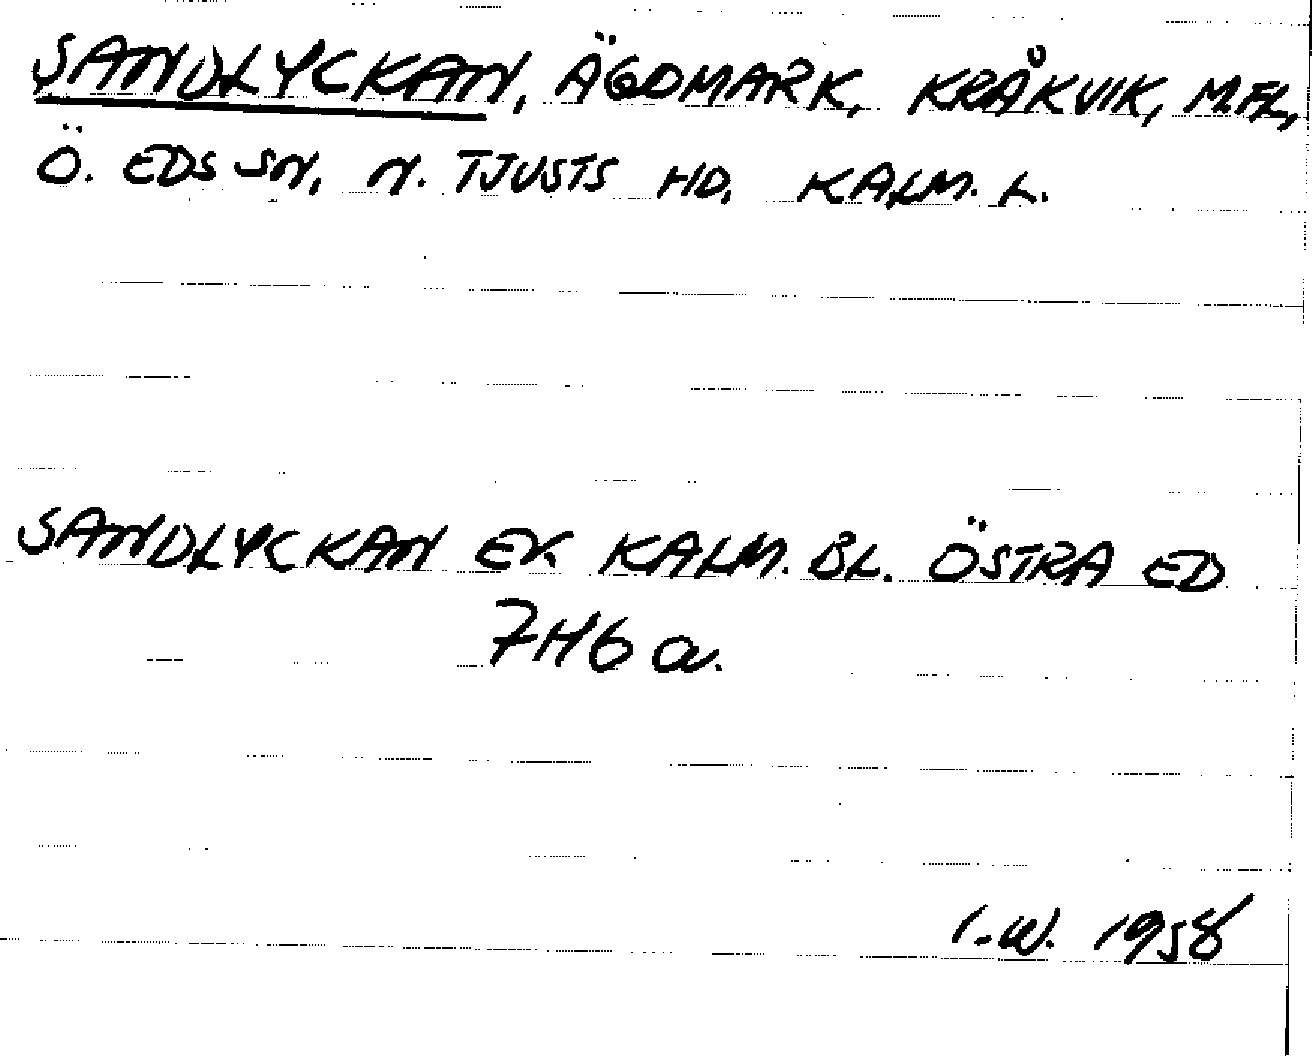 SANDLYCKAN, ÄGDMARK, KRÅKVIK, M.FL,
Ö. EDS SN, N. TJUSTS HD, KALM. L.
SANDLYCKAN EK. KALM. BL. ÖSTRA ED
7H6 a.
I.W. 1958